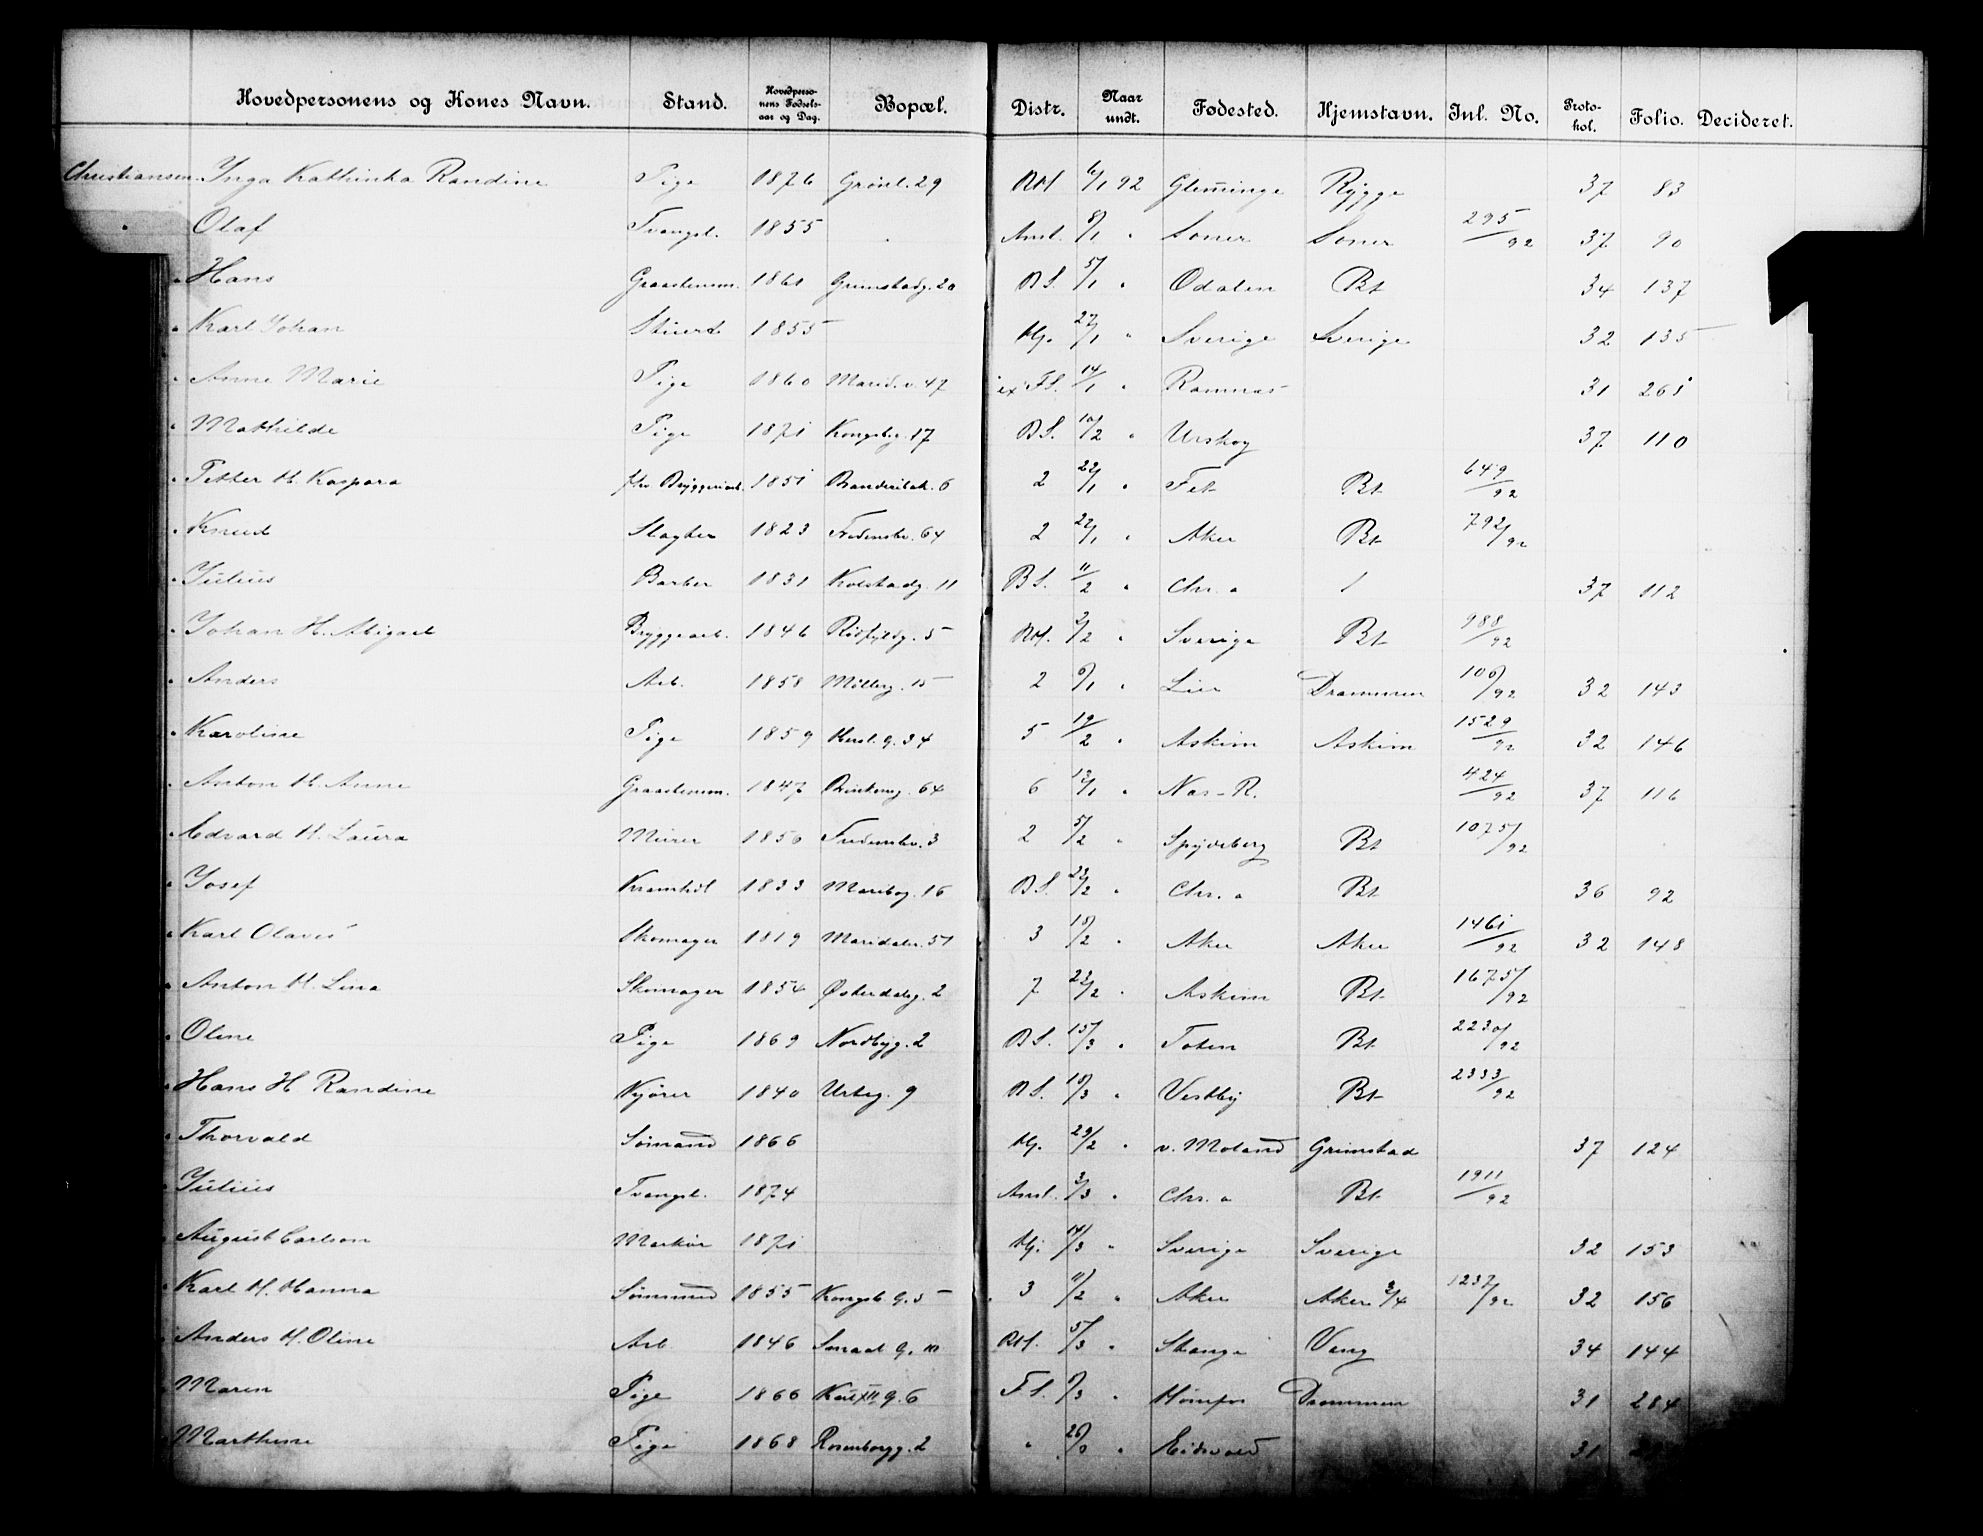 Hovedpersonens og Kones Navn. Stand. Hovedpersonens Fødselsaar og Dag. Bopæl. Distr. Naar undt. Fødested. Hjemstavn. Inl. No. Protokol. Folio. Decideret.
Christiansen Inga Kathinka Randine Pige 1876 Grønl. 29 6/1 92 Glemminge Rygge 37 83
" Olaf Tvangsl. 1855 Anst. 8/1 " Soner Soner 295/92 37 90
" Hans Graastensm. 1861 Grimstadg. 20 B S. 5/1 " Odalen Bt 34 137
" Karl Johan Stuert 1855 Hj. 27/1 " Sverige Sverige 32 135
" Anne Marie Pige 1860 Marid. v. 47 F S. 14/1 " Ramnæs 31 268
" Mathilde Pige 1871 Kongsbg. 17 B S. 10/2 " Urskog 37 110
" Petter H. Kaspara Bryggeriarb. 1851 6 2 22/1 " Fet Bt 649/92
" Knud Slagter 1823 Fredensbr. 64 2 22/1 " Aker Bt 792/92
" Julius Barber 1831 Kolstadg. 11 B S. 11/2 " Chr. a / 37 112
" Johan H. Abigael Bryggearb. 1846 Rødfyldg. 5 2/2 " Sverige Bt 988/92
" Anders Arb. 1858 Møllerg. 15 2 6/1 " Lier Drammen 106/92 32 143
" Karoline Pige 1859 Hersl. G. 34 5 19/2 " Askim Askim 1529/92 32 146
" Anton H. Anne Graastensm. 1847 Brinkeng. 64 6 13/1 " Næs - R. 424/92 37 116
" Edvard H. Laura Murer 1850 Fredensbv. 3 2 5/2 " Spydeberg Bt 1075/92
" Josef Kramhdl 1833 Maribog. 16 B S. 23/2 " Chr. a Bt 36 92
" Karl Olaves Skomager 1819 Maridalsv. 51 3 18/2 " Aker Aker 1461/92 32 148
" Anton H. Lina Skomager 1854 Østerdalsg. 2 7 23/2 " Askim Bt 1675/92
" Oline Pige 1869 Nordbyg. 2 B S. 15/3 " Toten Bt 2230/92
" Hans H Randine Kjører 1840 Urteg. 9 B S. 18/3 " Vestby Bt 2333/92
" Thorvald Sømand 1866 Hj. 29/2 " v. Moland Grimstad 37 124
" Julius Tvangsl. 1874 Anst. 3/3 " Chr. a Bt 1911/92
" August Carlson Markør 1871 Hj. 14/3 " Sverige Sverige 32 153
" Karl H. Hanna Sømmand 1855 Kongsb. G. 5 3 11/2 " Aker Aker 3/4 1237/92 32 156
" Anders H. Oline Arb 1846 G. 10 5/3 " Stange Vang 34 144
" Maren Pige 1866 Karl XII G. 6 F S. 8/3 " Hønefos Drammen 31 284
" Marthine Pige 1868 Rosenborgg. 2 " " Eidsvold 31